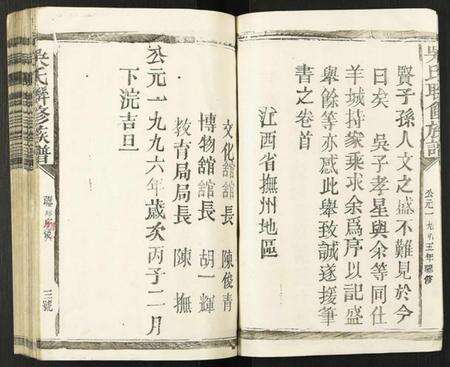 吳氏聯修族譜
賢子孫人文之盛不難見於今
日矣　吳子孝星與余等同仕
羊城持家乘求余爲序以記盛
舉餘等亦感此舉致誠遂援筆
書之卷首
江西省撫州地區
文化舘舘長　陳俊青
博物舘舘長　胡一輝
教育局局長　陳撫
公元一九九六年歲次丙子二月
下浣吉旦
公元一九九五年聯修
吳氏聯修族譜
三號